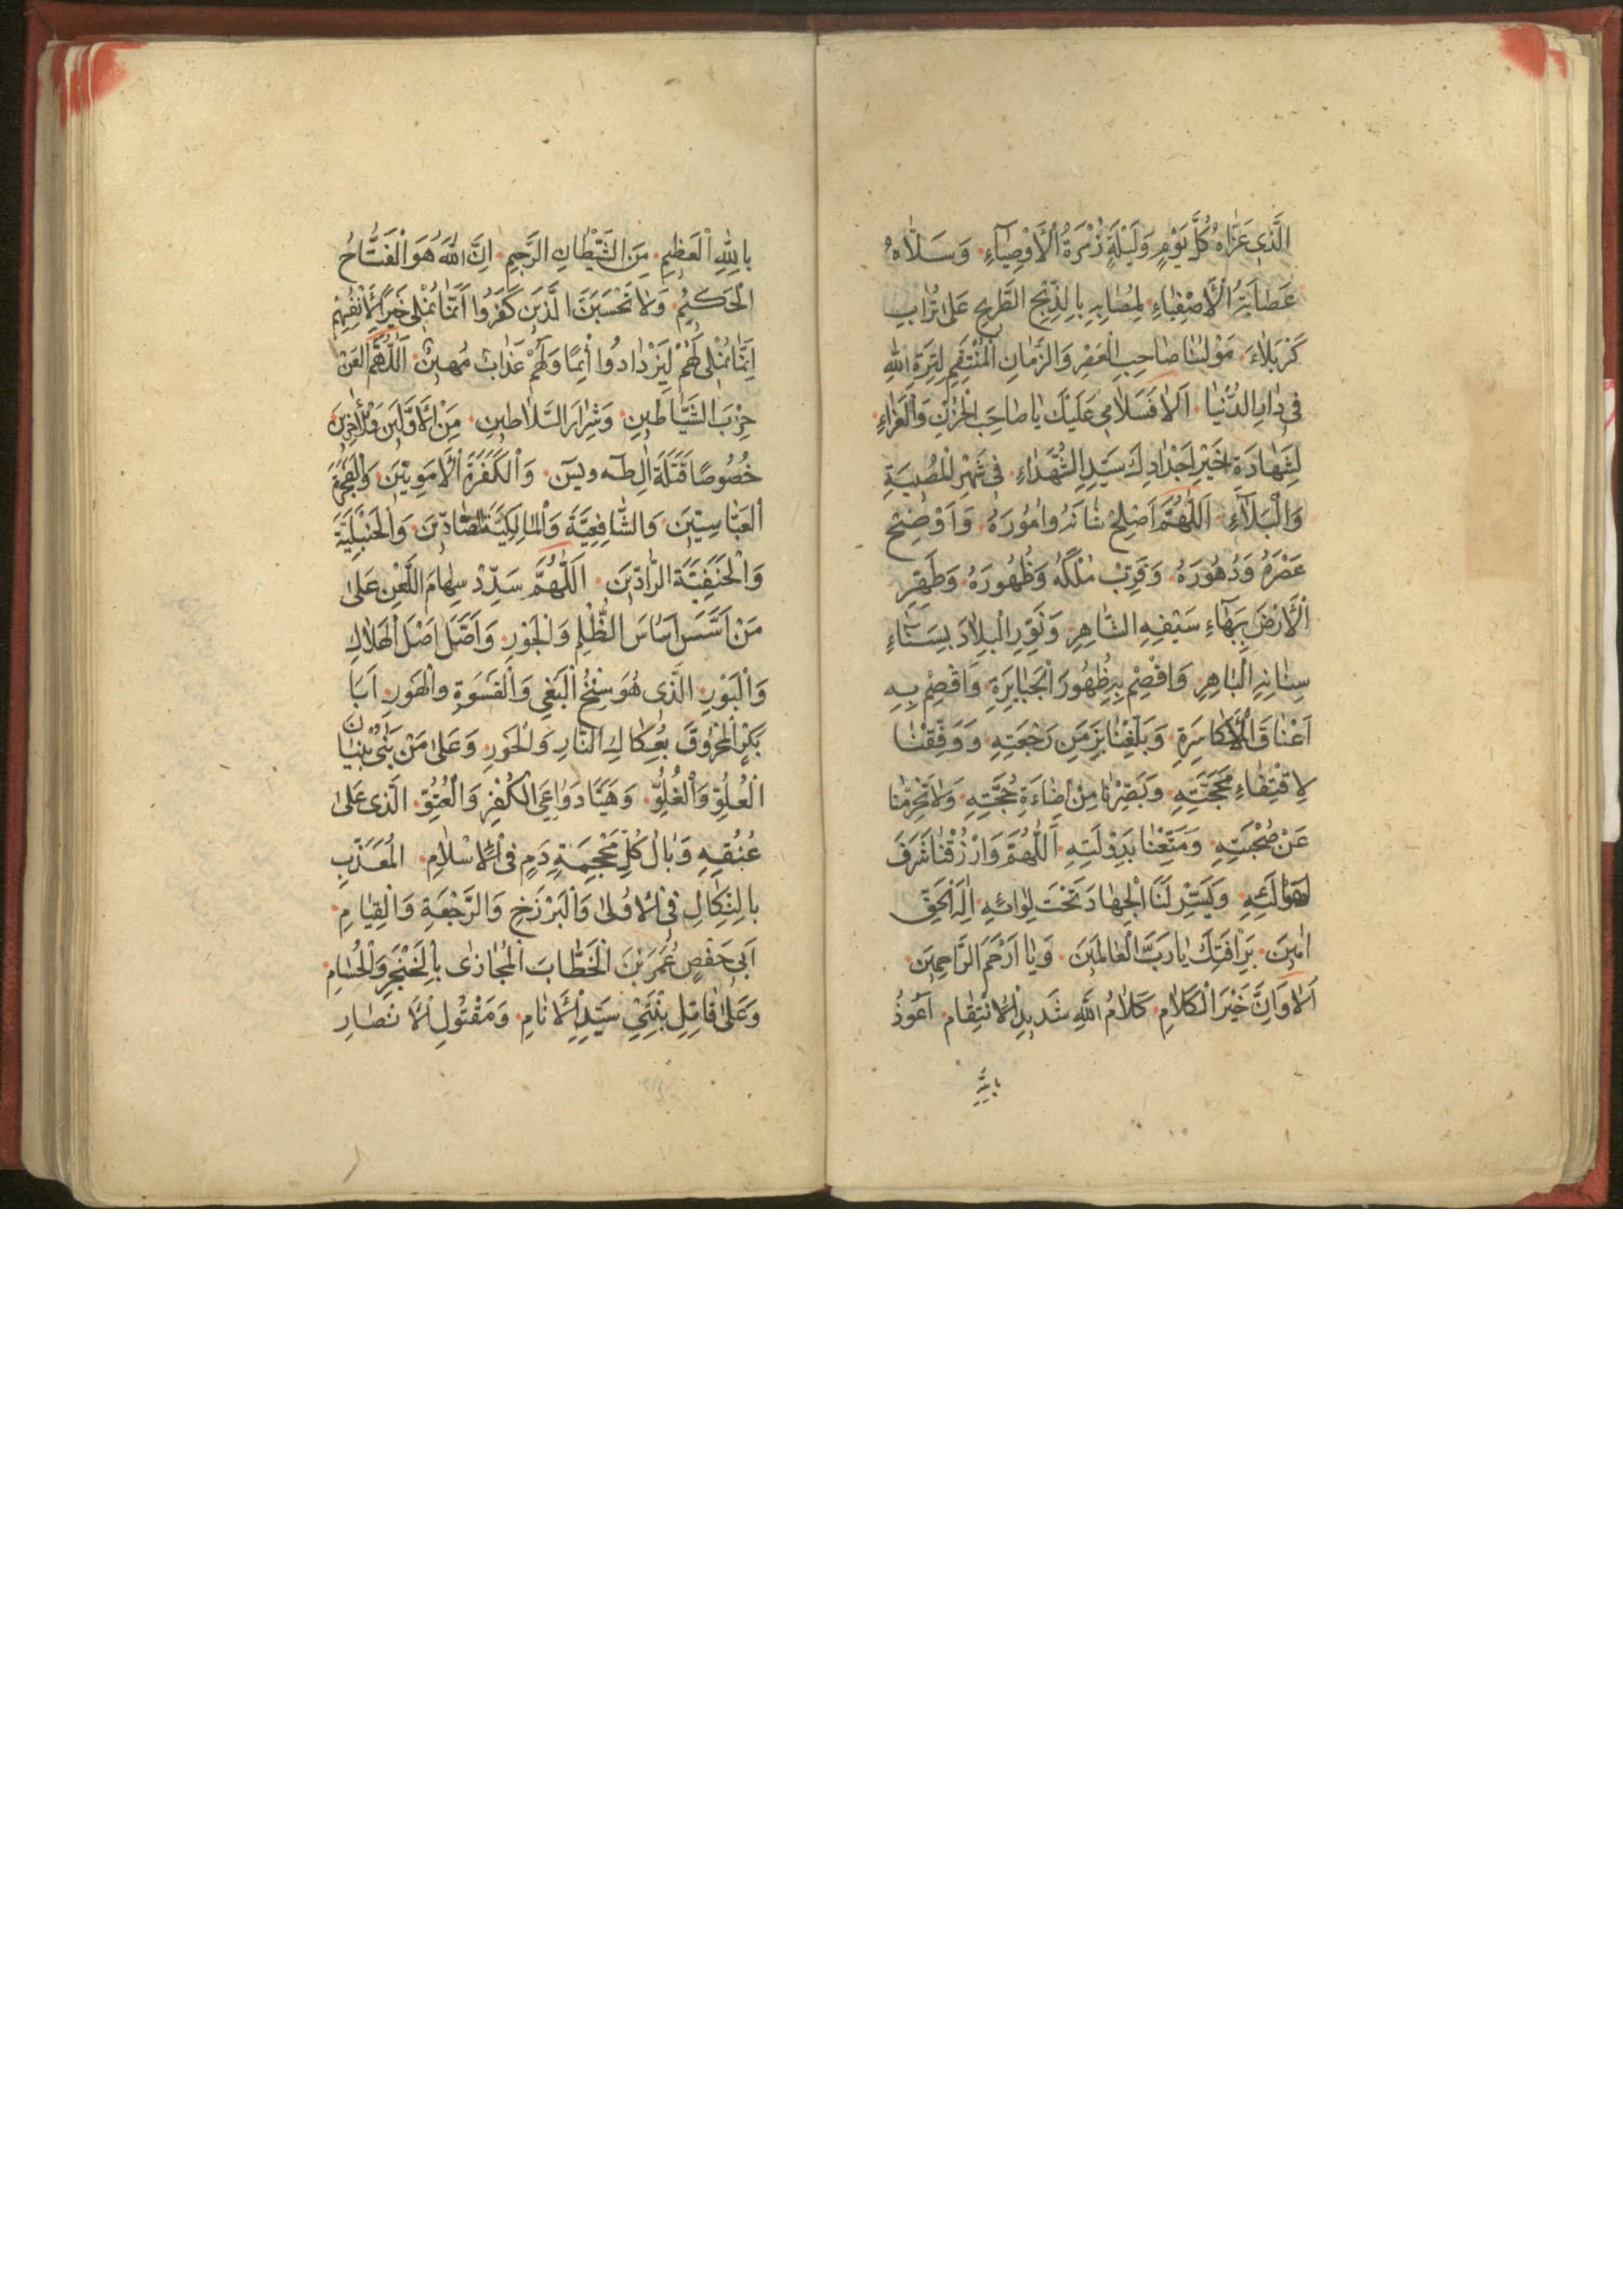 الَّذى عَزّاهُ كُلَّ يَوْمٍ وَلَيْلَةٍ زُمْرَةُ الْاَوْصِيٰآءِ وَسَلّاهُ
عَصٰابَةُ الْاَصْفِيٰاءِ لِمُصٰابِهِ بِالذَّبْحِ الطَّريحِ عَلىٰ تُرٰابِ
كَرْبَلاٰءَ مَوْلٰينٰا صٰاحِبِ الْعَصْرِ وَالزَّمٰانِ الْمُنْتَقِمِ لِتِرَةِ اللّٰهِ
فى دٰارِ الدُّنْيٰا اَلاٰ فَسَلاٰمى عَلَيْكَ يٰا صٰاحِبَ الْحُزْنِ وَالْعَزٰاءِ
لِشَهٰادَةِ خَيْرِ اَجْدٰادِكَ سَيِّدِ الشُّهَدٰاءِ فى شَهْرِ الْمُصيبَةِ
وَالْبَلآءِ اَللّٰهُمَّ اَصْلِحْ شٰانَهُ وَاُمُورَهُ وَاَوْضِحْ
عَصْرَهُ وَدُهُورَهُ وَقَرِّبْ مُلْكَهُ وَظُهُورَهُ وَطَهِّرِ
الْاَرْضَ بِبَهٰآءِ سَيْفِهِ الشّٰاهِرِ وَنَوِّرِ الْبِلاٰدَ بِسَنٰاءِ
سِنٰانِهِ الْبٰاهِرِ وَاقْصِمْ بِهِ ظُهُورَ الْجَبٰابِرَةِ وَاقْصِمْ بِهِ
اَعْنٰاقَ الْاَكٰاسِرَةِ وَبَلِّغْنٰا بِزَمَنِ رَجْعَتِهِ وَوَفِّقْنٰا
لِاقْتِفٰاءِ مَحَجَّتِهِ وَبَصِّرْنٰا مِنْ اِضٰاءَةِ حُجَّتِهِ وَلاٰ تَحْرِمْنٰا
عَنْ صُحْبَتِهِ وَمَتِّعْنٰا بِدَوْلَتِهِ اَللّٰهُمَّ وَارْزُقْنٰا شَرَفَ
وَيَسِّرْ لَنَا الْجِهٰادَ تَحْتَ لِوٰائِهِ اِلٰهَ الْحَقِّ
اٰمينَ بِرَافَتِكَ يٰا رَبَّ الْعٰالَمينَ وَيٰا اَرْحَمَ الرّٰاحِمينَ
اَلاٰ وَاِنَّ خَيْرَ الْكَلاٰمِ كَلاٰمُ اللّٰهِ شَديدِ الْاِنْتِقٰامِ اَعُوذُ
باللّٰه
بِاللّٰهِ الْعَظيمِ مِنَ الشَّيْطٰانِ الرَّجيمِ اِنَّ اللّٰهَ هُوَ الْفَتّٰاحُ
الْحَكيمُ وَلاٰ تَحْسَبَنَّ الَّذينَ كَفَرُوا اَنَّمٰا نُمْلى خَيْرٌ لِاَنْفُسِهِمْ
اِنَّمٰا نُمْلى لَهُمْ لِيَزْدٰادُوا اِثْمًا وَلَهُمْ عَذٰابٌ مُهينٌ اَللّٰهُمَّ الْعَنْ
حِزْبَ الشَّيٰاطينِ وَشِرٰارَ السَّلاٰطينِ مِنَ الْاَوَّلينَ وَالْاٰخِرينَ
خُصُوصًا قَتَلَةَ اٰلِ طٰه ويٰسٓ وَالْكَفَرَةَ الْاَمَوِيّينَ وَالْفَجَرَةَ
الْعَبّٰاسِيّينَ وَالشّٰافِعِيَّةَ وَالْمٰالِكِيَّةَ الصّٰادّينَ وَالْحَنْبَلِيَّةَ
وَالْحَنَفِيَّةَ الرّٰادّينَ اَللّٰهُمَّ سَدِّدْ سِهٰامَ اللَّعْنِ عَلىٰ
مَنْ اَسَّسَ اَسٰاسَ الظُّلْمِ وَالْجَوْرِ وَاَصَّلَ اَصْلَ الْهَلاٰكِ
وَالْبَوْرِ الَّذى هُوَ سِنْخُ الْبَغْىِ وَالْقَسْوَةِ وَالْهَوْرِ اَبٰا
بَكْرٍ الْمَحْرُوقَ بِعُكٰاكِ النّٰارِ وَالْحَوْرِ وَعَلىٰ مَنْ بَنىٰ بُنْيٰانَ
الْعُلُوِّ وَالْغُلُوِّ وَهَيَّأَ دَوٰاعِىَ الْكُفْرِ وَالْعُتُوِّ الَّذى عَلىٰ
عُنُقِهِ وَبٰالُ كُلِّ مَحْجِمَةِ دَمٍ فِى الْاِسْلاٰمِ الْمُعَذَّبِ
بِالنَّكٰالِ فِى الْاُولىٰ وَالْبَرْزَخِ وَالرَّجْعَةِ وَالْقِيٰامِ
اَبى حَفْصٍ عُمَرَ بْنَ الْخَطّٰابَ الْمُجٰازىٰ بِالْخَنْجَرِ وَالْحُسٰامِ
وَعَلىٰ قٰاتِلِ بِنْتَىْ سَيِّدِ الْاَنٰامِ وَمَقْتُولِ الْاَنْصٰارِ